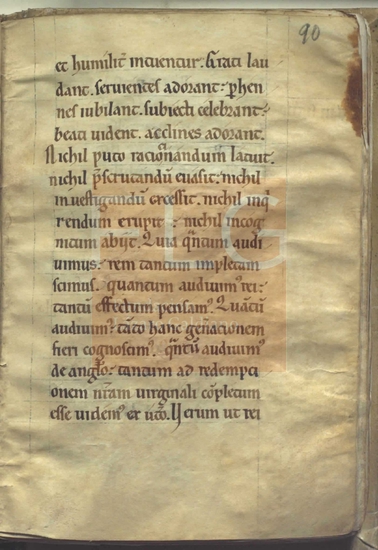 90
et humilit̄ intuentur. Grati lau
dant. seruientes adorant: phen
nes iubilant. subiecti celebrant:
beati uident. acclines adorant.
Nichil puto racionandum latuit.
nichil p̄scrutandū euasit: nichil
inuestigandū excessit. nichil inq̄
rendum erupit: nichil incog
nitum abijt. Quia q̄ntum audi
uimus: rem tantum impletam
scimus. quantum audiuim᷒ rei:
tantū effectum pensam᷒. Quātū
audiuim᷒ tāto hanc gen̄acionem
fieri cognoscim᷒. q̄ntū audiuim᷒
de anglo: tantum ad redempci
onem nr̄am uirginali cōpletum
esse uidem᷒ et
Uerum ut rei